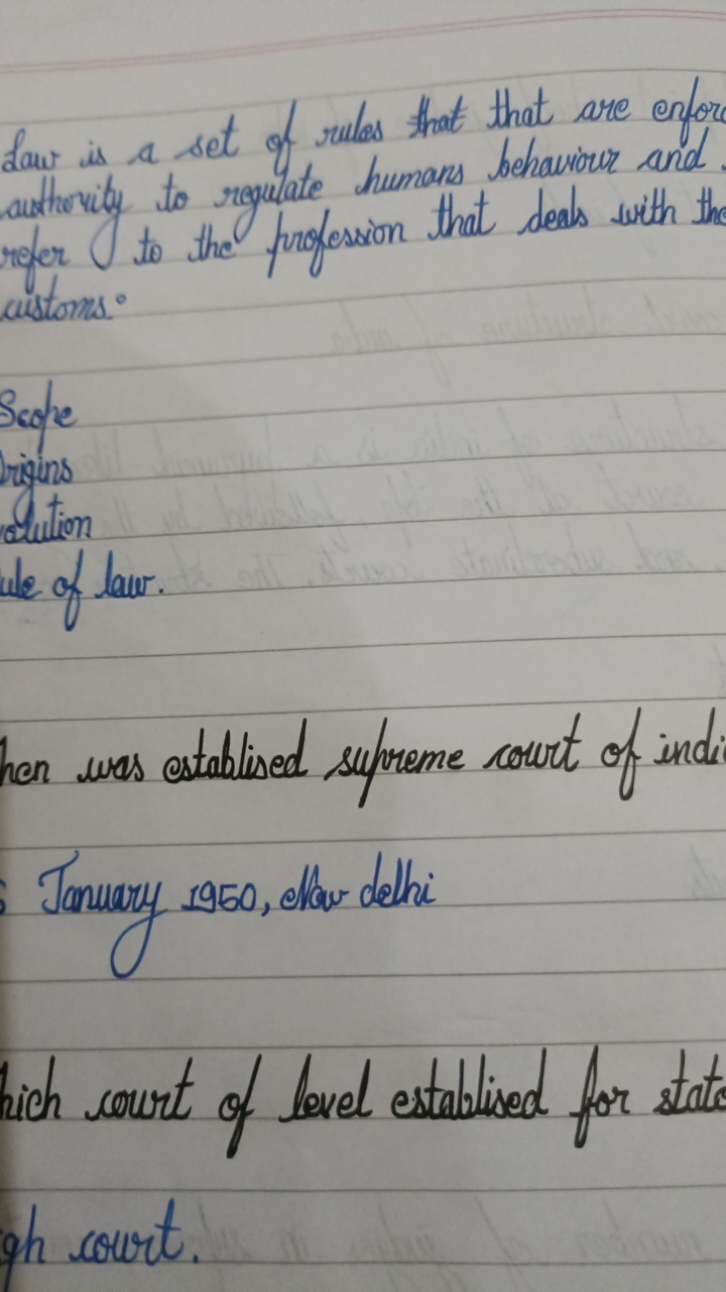 Law is a set of rules that that are enforc
authority to regulate humans behaviour and
refer to the profession that deals with the
customs.
Scope
Origins
olution
ule of law.
hen was establised supreme court of indi
January 1950, New delhi
hich court of level establised for state
gh court.